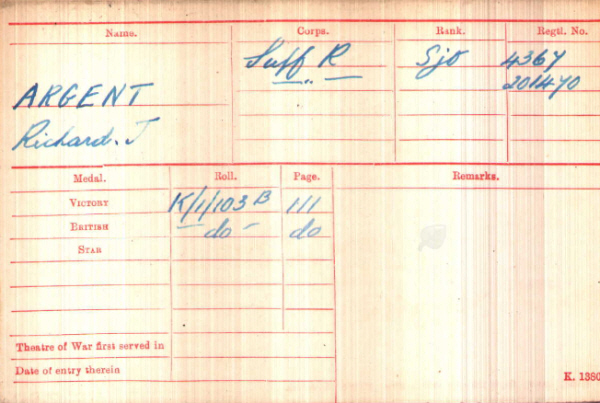 Name. Corps. Rank. Regtl. No.
Suff R Sjt 4367
" 201470
ARGENT
Richard. J
Medal. Roll. Page. Remarks.
VICTORY K/1/103 B 111
BRITISH do do
STAR
Theatre of War first served in
Date of entry therein
K. 1380